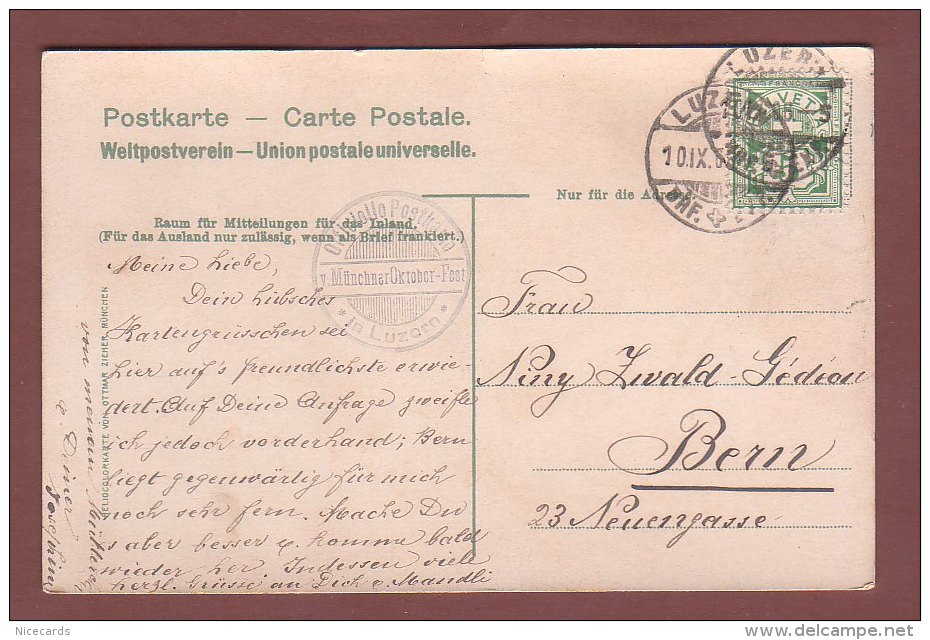 Postkarte — Carte Postale.
Weltpostverein — Union postale universelle.
Nur für die
Raum für Mitteilungen für das Inland.
(Für das Ausland nur zulässig, wenn als Brief frankiert.)
Offizielle Postkarte
v. Münchner Oktober-Fest
* in Luzern *
LUZERN
10.IX.
BHF.
LUZERN
HELVETIA
FRANCO
Meine Liebe,
Dein hübsches
Kartengrüsschen sei
hier auf's freundlichste erwie-
dert. Auf Deine Anfrage zweifle
ich jedoch vorderhand; Bern
liegt gegenwärtig für mich
noch sehr fern. Mache Du
s aber besser u. komme bald
wieder her Indessen viele
herzl. Grüsse an Dich u. Mandli
von meiner
u. Deiner
Josephine
Frau
Niny Zwald-Gédéon
Bern
23 Neuengasse
HELIOCOLORKARTE VON OTTMAR ZIEHER MÜNCHEN
Nicecards
delcampe.net